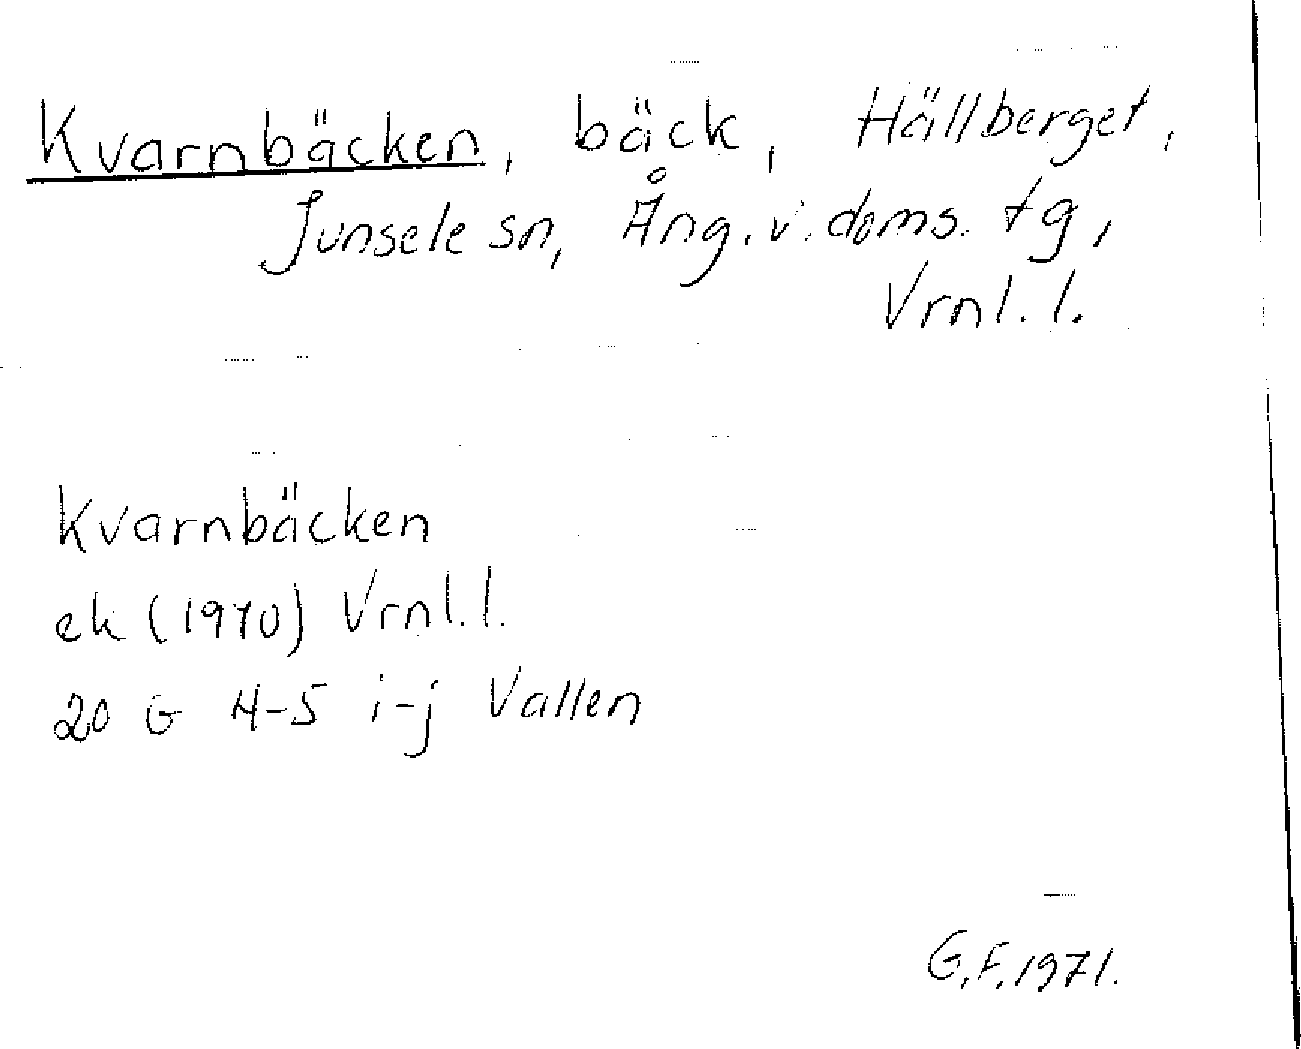 Kvarnbäcken, bäck, Hällberget,
Junsele sn, Ång. v. doms. tg,
Vrnl. l.
Kvarnbäcken
ek (1970) Vrnl. l.
20 G 4-5 i-j Vallen
G.F. 1971.